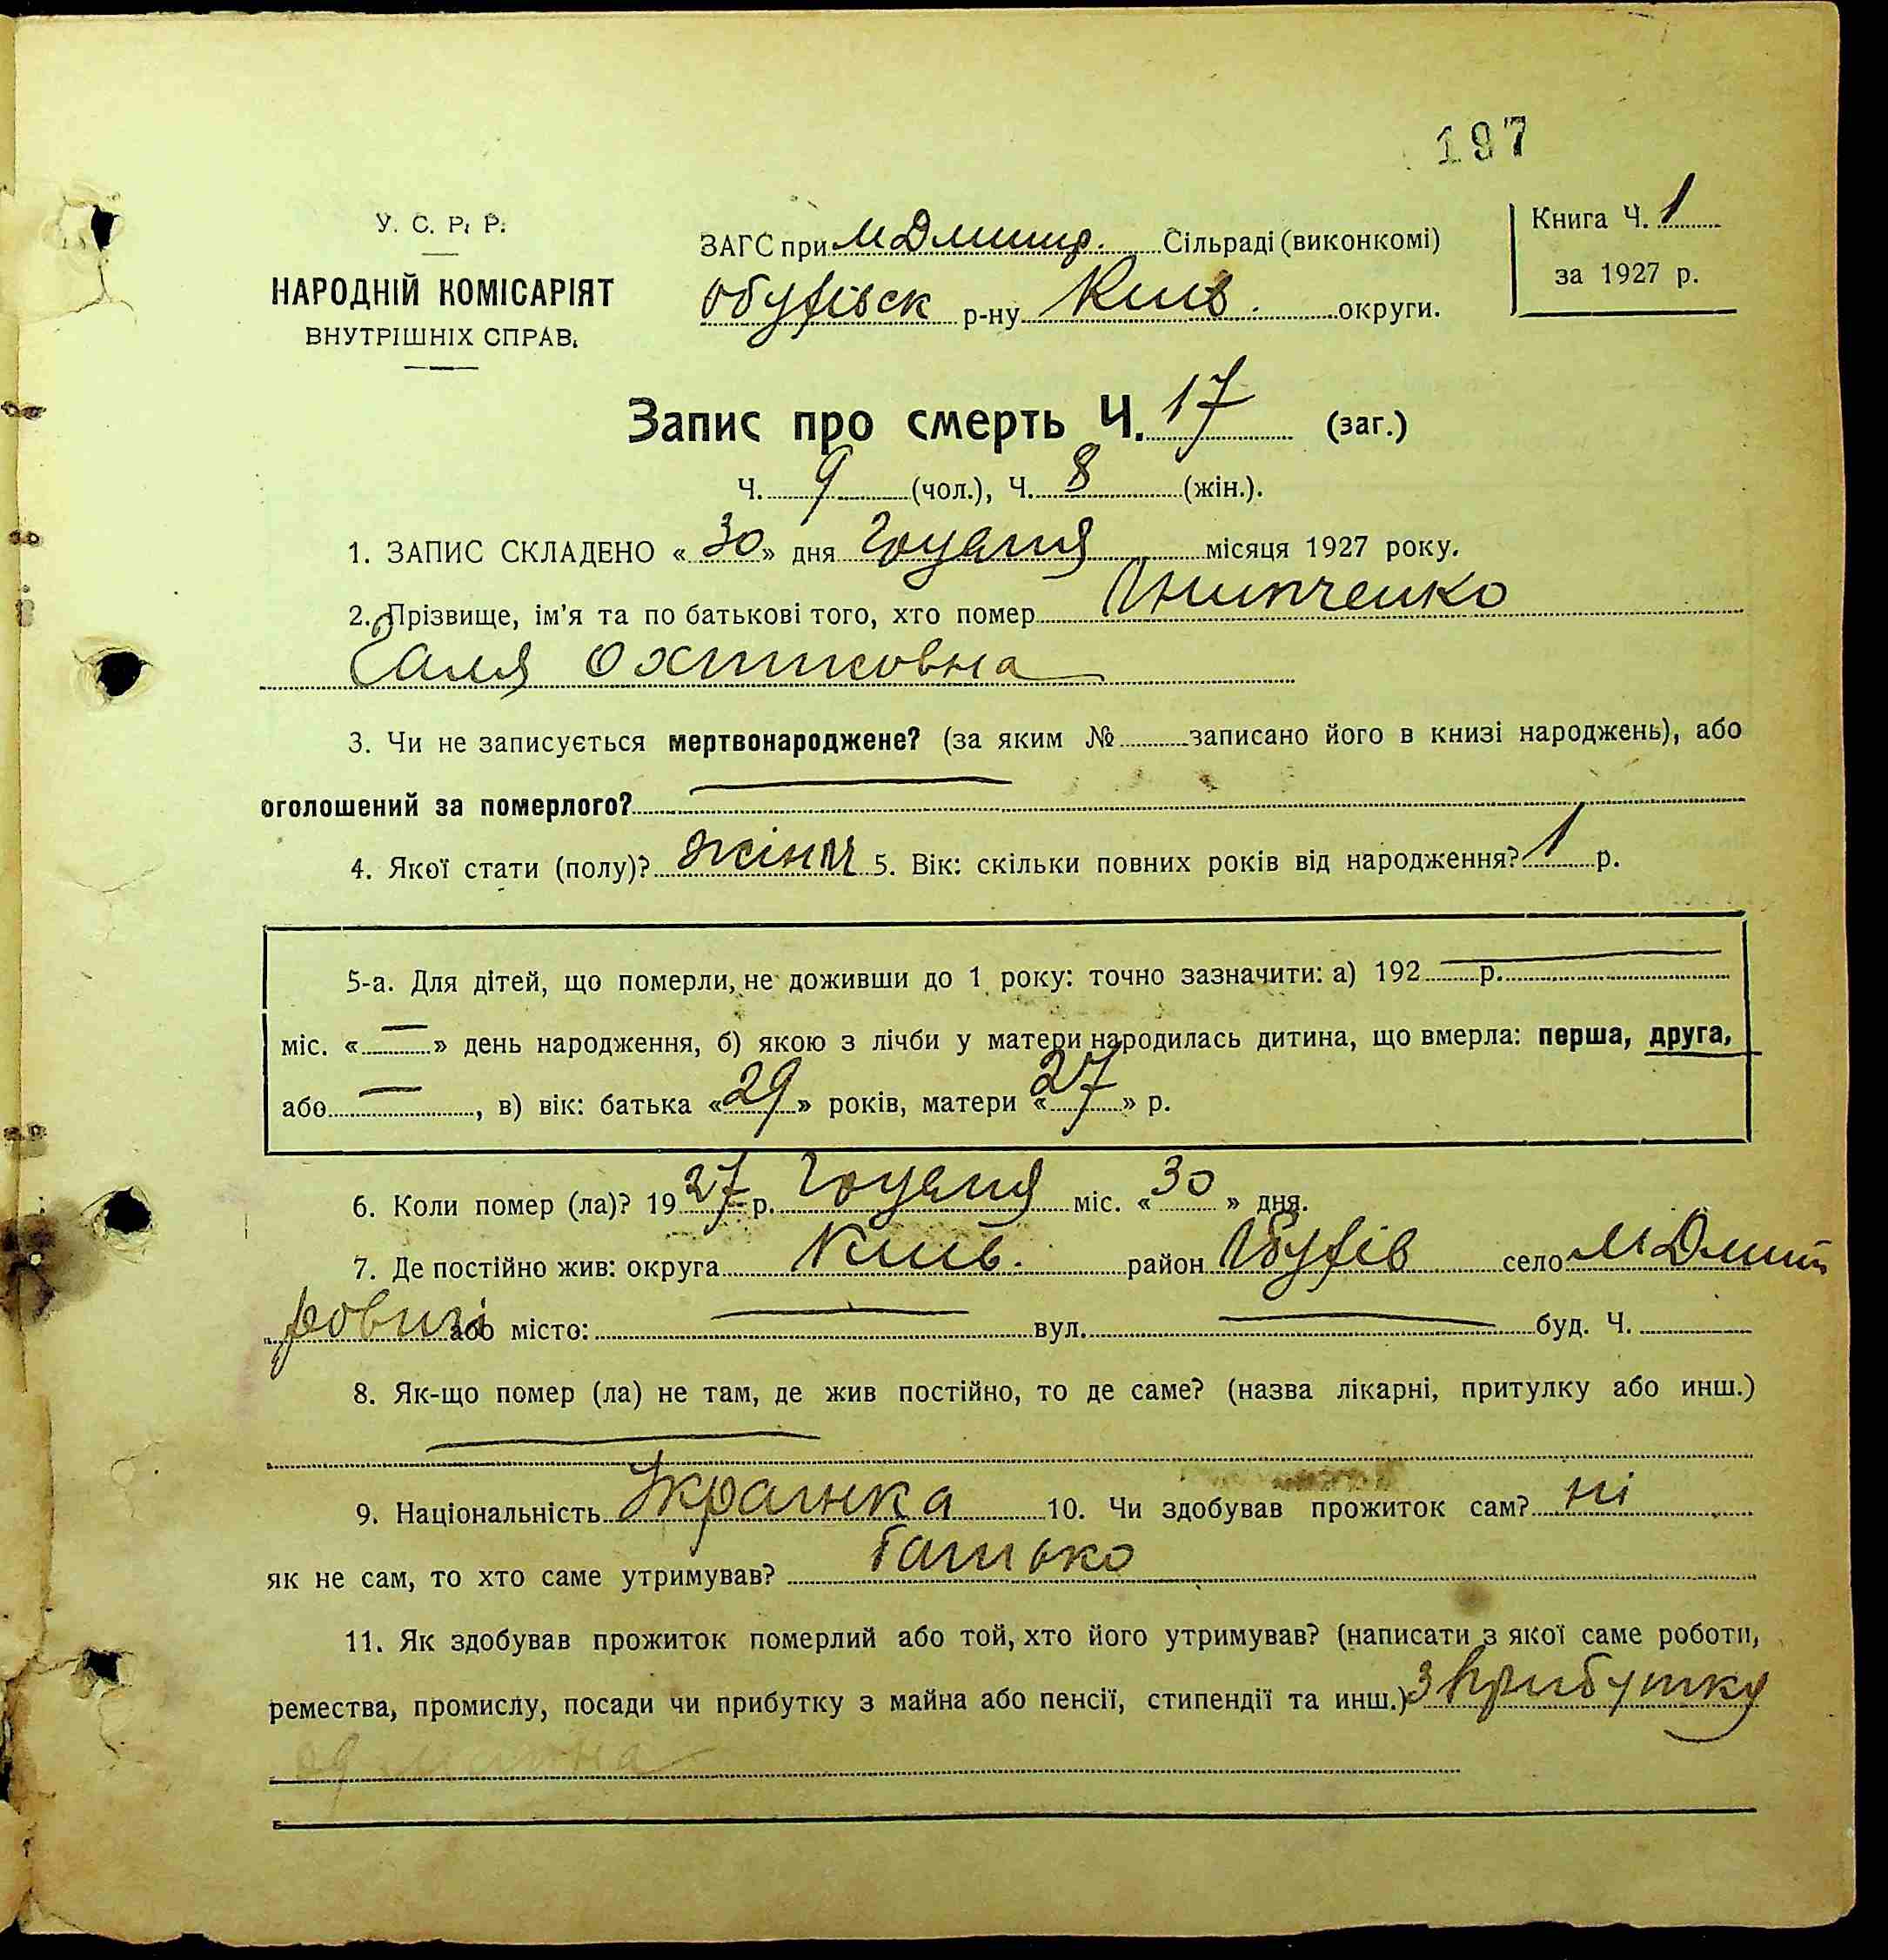 197
У. С. Р. Р.
НАРОДНІЙ КОМІСАРІЯТ
ВНУТРІШНІХ СПРАВ.
ЗАГС при МДмитр. Сільраді (виконкомі)
Обухівск р-ну Київ. округи.
Книга Ч. 1
за 1927 р.
Запис про смерть Ч. 17 (заг.)
Ч. 9 (чол.), Ч. 8 (жін.).
1. ЗАПИС СКЛАДЕНО « 30 » дня місяця 1927 року.
2. Прізвище, ім'я та по батькові того, хто помер
Галя
3. Чи не записується мертвонароджене? (за яким № записано його в книзі народжень), або
оголошений за померлого?
4. Якої стати (полу)? жіноч 5. Вік: скільки повних років від народження? 1 р.
5-а. Для дітей, що померли, не доживши до 1 року: точно зазначити: а) 192 р.
міс. « — » день народження, б) якою з лічби у матери народилась дитина, що вмерла: перша, друга,
або — , в) вік: батька « 29 » років, матери « 27 » р.
6. Коли помер (ла)? 19 27 р. міс. « 30 » дня.
7. Де постійно жив: округа Київ. район Обухів село МДмит
ровичі або місто: — вул. — буд. Ч.
8. Як-що помер (ла) не там, де жив постійно, то де саме? (назва лікарні, притулку або инш.)
9. Національність Українка 10. Чи здобував прожиток сам? ні
як не сам, то хто саме утримував? батько
11. Як здобував прожиток померлий або той, хто його утримував? (написати з якої саме роботи,
ремества, промислу, посади чи прибутку з майна або пенсії, стипендії та инш.) з прибутку